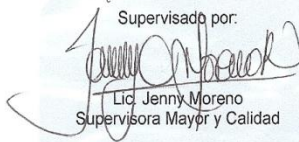 Supervisado por:
Jenny Moreno
Lic. Jenny Moreno
Supervisora Mayor y Calidad